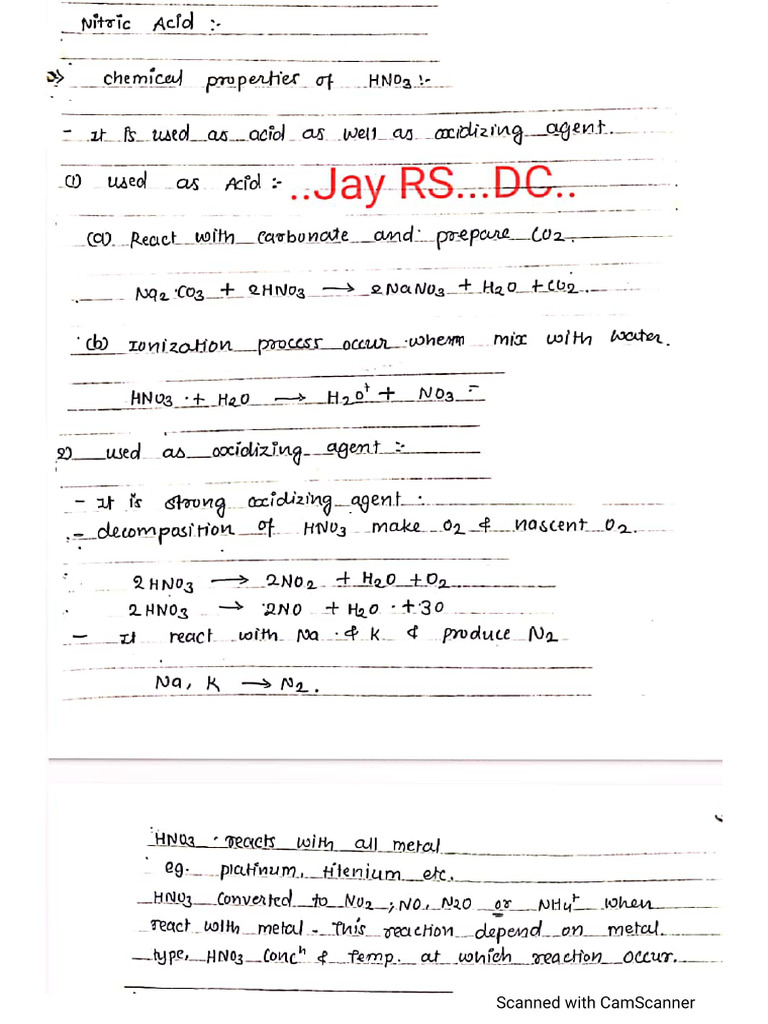 Nitric Acid :-
chemical properties of HNO3 :-
- It is used as acid as well as oxidizing agent.
(1) used as Acid :- ..Jay RS...DC..
(a) React with carbonate and prepare CO2.
Na2CO3 + 2HNO3 → 2NaNO3 + H2O + CO2.
(b) Ionization process occur when mix with water.
HNO3 + H2O → H2O+ + NO3-
2) used as oxidizing agent :-
- It is strong oxidizing agent.
- decomposition of HNO3 make O2 & nascent O2.
2HNO3 → 2NO2 + H2O + O2
2HNO3 → 2NO + H2O + 3O
- It react with Na & K & produce N2
Na, K → N2.
HNO3 reacts with all metal
eg. platinum, tilenium etc.
HNO3 converted to NO2, NO, N2O or NH4+ when
react with metal - This reaction depend on metal
type, HNO3 conch & Temp. at which reaction occur.
Scanned with CamScanner